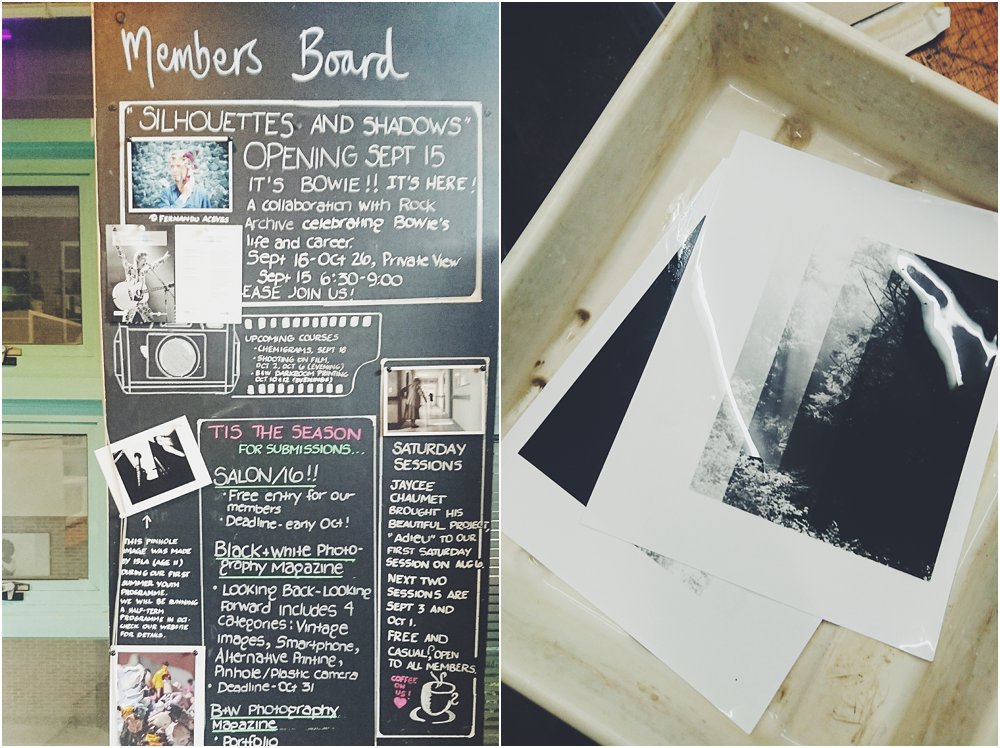 Members Board
"SILHOUETTES AND SHADOWS"
OPENING SEPT 15
IT'S BOWIE!! IT'S HERE!
A collaboration with Rock
Archive celebrating Bowie's
life and career.
Sept 16-Oct 26, Private View
Sept 15 6:30-9:00
EASE JOIN US!
© FERNANDO ACEVES
UPCOMING COURSES
• CHEMIGRAMS, SEPT 18
• SHOOTING ON FILM,
OCT 2, OCT 6 (EVENING)
• B&W DARKROOM PRINTING
OCT 10+12 (EVENINGS)
'TIS THE SEASON
FOR SUBMISSIONS...
SALON/16!!
• Free entry for our
members
• Deadline-early Oct!
Black+White Photo-
graphy Magazine
• Looking Back-Looking
Forward includes 4
categories: Vintage
images, Smartphone,
Alternative Printing,
Pinhole/Plastic camera
• Deadline-Oct 31
B+W Photography
Magazine
• Portfolio
THIS PINHOLE
IMAGE WAS MADE
BY ISLA (AGE 11)
DURING OUR FIRST
SUMMER YOUTH
PROGRAMME.
WE WILL BE RUNNING
A HALF-TERM
PROGRAMME IN OCT-
CHECK OUR WEBSITE
FOR DETAILS.
SATURDAY
SESSIONS
JAYCEE
CHAUMET
BROUGHT HIS
BEAUTIFUL PROJECT,
"Adieu" TO OUR
FIRST SATURDAY
SESSION ON AUG 6.
NEXT TWO
SESSIONS ARE
SEPT 3 AND
OCT 1.
FREE AND
CASUAL, OPEN
TO ALL MEMBERS.
COFFEE
ON
US!